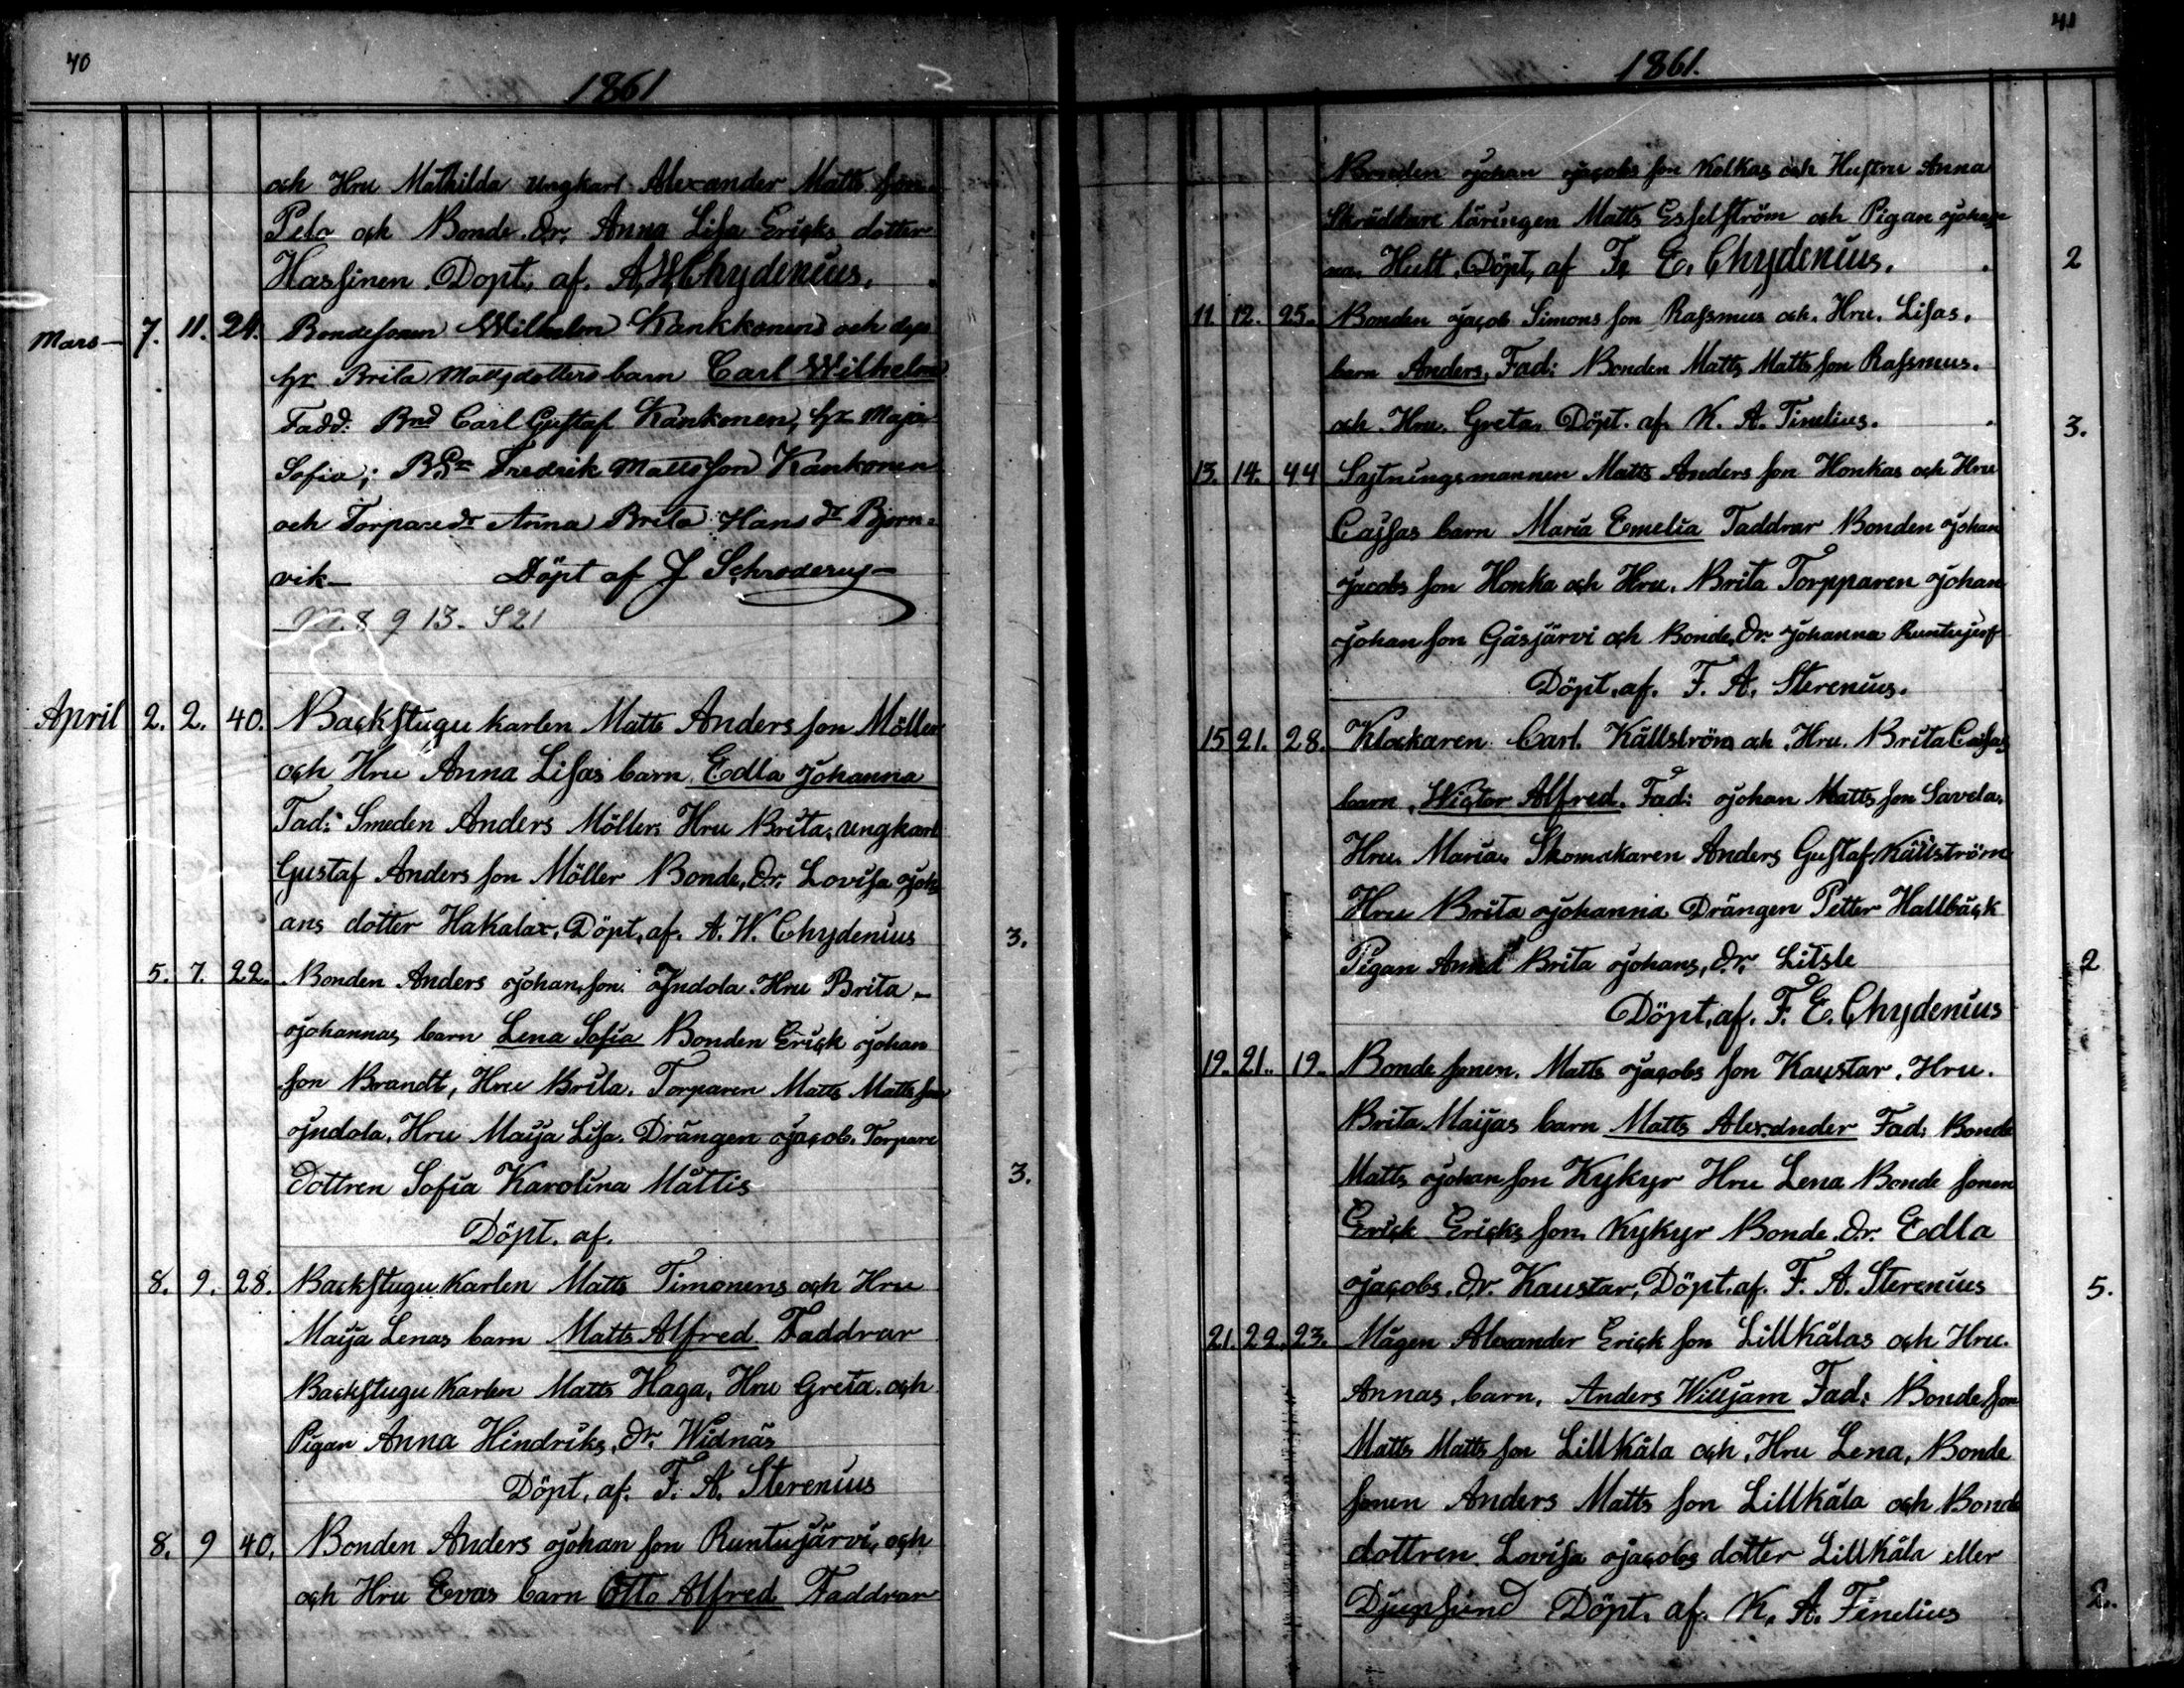 40
1861
och Hru Mathilda ungkarl Alexander Matts son
Pelo och Bonde dr. Anna Lisa Ericks dotter
Hassinen. Döpt, af. A W Chydenius.
Mars 7. 11. 24. Bondesonen Wilhelm Kankkonens och dess
hr Brita Mattsdotters barn Carl Wilhelm
Fadd: Bnd Carl Gustaf Kankonen, hr Maja
Sofia; BSn Fredrik Mattsson Kankonen
och Torparedr Anna Brita Hans dr Bjorn-
vik Döpt af J Schroderus
M. 8 9 13. S 21
April 2. 2. 40. Backstugu karlen Matts Anders son Möller
och Hru Anna Lisas barn Edla Johanna
Fad: Smeden Anders Möller Hru Brita, ungkarl
Gustaf Anders son Möller Bonde, dr. Lovisa Joh
ans dotter Hakalax. Döpt, af. A. W. Chydenius 3.
5. 7. 22. Bonden Anders Johan son Indola Hru Brita
Johannas barn Lena Sofia Bonden Erick Johan
son Brandt, Hru Brita. Torparen Matts Matts son
Indola, Hru Maija Lisa. Drängen Jacob. Torpare
dottren Sofia Karolina Mattis 3.
Döpt. af.
8. 9. 28. Backstugu Karlen Matts Timonens och Hru
Maija Lenas barn Matts Alfred Faddrar
Backstugu Karlen Matts Haga, Hru Greta. och
Pigan Anna Hindriks, dr. Widnäs
Döpt, af. F. A. Sterenius
8. 9 40. Bonden Anders Johan son Runtujärvi, och
och Hru Evas barn Otto Alfred Faddrar
41
1861.
Bonden Johan Jacobs son Kolkas och Hustru Anna
Skräddare läringen Matts Esselström och Pigan Johan
na Hult. Döpt, af F. E. Chydenius. 2
11. 12. 25. Bonden Jacob Simons son Rassmus och. Hru. Lisas.
barn Anders, Fad: Bonden Matts Matts son Rassmus.
och Hru. Greta. Döpt. af K. A. Finelius. 3.
13. 14. 44 Sytningsmannen Matts Anders son Honkas och Hru
Cajsas barn Maria Emelia Faddrar Bonden Johan
Jacobs son Honka och Hru. Brita Torpparen Johan
Johan son Gäsjärvi och Bonde, dr. Johanna Runtujerf
Döpt. af. F. A. Sterenius.
15 21. 28. Klockaren Carl Källström och Hru. Brita Caisas
barn, Wictor Alfred. Fad: Johan Matts son Savela.
Hru. Maria. Skomakaren Anders Gustaf Källström
Hru Brita Johanna Drängen Petter Hallbäck
Pigan Anna Brita Johans, dr. Litsle 2
Döpt, af. F. E. Chydenius
19. 21. 19. Bonde sonen. Matts Jacobs son Kaustar. Hru.
Brita Maijas barn Matts Alexander Fad: Bonde
Matts Johan son Kykyr Hru Lena Bonde sonen
Erick Ericks son Kykyr Bonde dr. Edla
Jacobs. dr. Kaustar, Döpt. af. F. A. Sterenius 5.
21. 22. 23. Mågen Alexander Erick son Lillkålas och Hru.
Annas, barn, Anders Willjam Fad: Bondeson
Matts Matts son Lillkåla och, Hru Lena, Bonde
sonen Anders Matts son Lillkåla och Bonde
dottren Lovisa Jacobs dotter Lillkåla eller
Djupsund Döpt, af. K. A. Finelius 2.